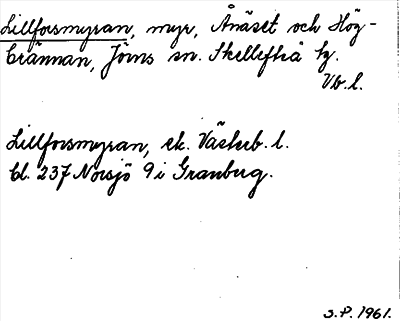 Lillforsmyran, myr, Ånäset och Hög-
brännan, Jörns sn. Skellefteå tg.
Vb. l.
Lillforsmyran, ek. Västerb. l.
bl. 237 Norsjö 9 i Granberg.
S.P. 1961.